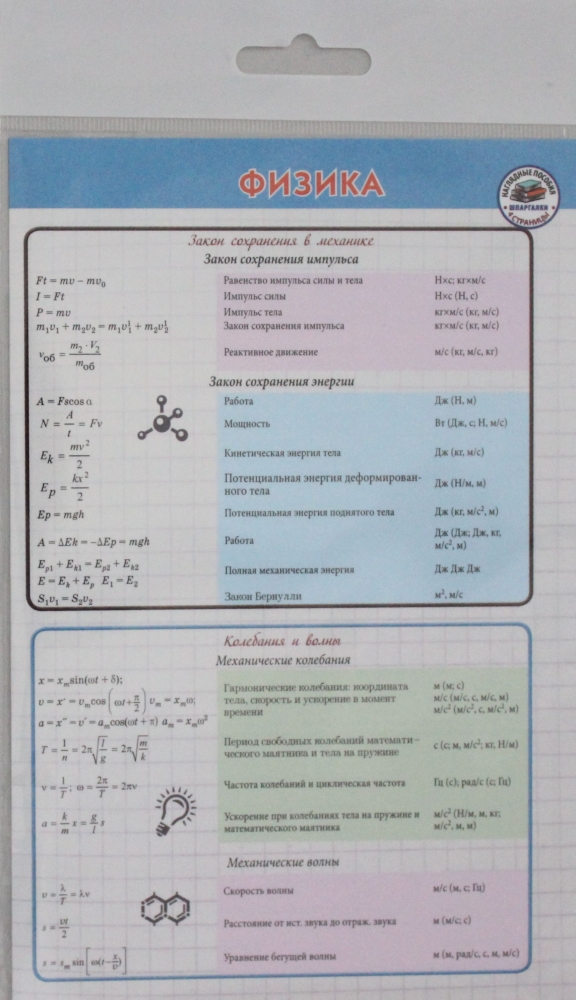 ФИЗИКА
НАГЛЯДНЫЕ ПОСОБИЯ
ШПАРГАЛКИ
4 СТРАНИЦЫ
Закон сохранения в механике
Закон сохранения импульса
Ft = mv − mv₀ Равенство импульса силы и тела Н×с; кг×м/с
I = Ft Импульс силы Н×с (Н, с)
P = mv Импульс тела кг×м/с (кг, м/с)
m₁v₁ + m₂v₂ = m₁v₁¹ + m₂v₂¹ Закон сохранения импульса кг×м/с (кг, м/с)
v_об = m₂ · V₂ / m_об Реактивное движение м/с (кг, м/с, кг)
Закон сохранения энергии
A = Fscos α Работа Дж (Н, м)
N = A/t = Fv Мощность Вт (Дж, с; Н, м/с)
E_k = mv²/2 Кинетическая энергия тела Дж (кг, м/с)
E_p = kx²/2 Потенциальная энергия деформирован-
ного тела Дж (Н/м, м)
Ep = mgh Потенциальная энергия поднятого тела Дж (кг, м/с², м)
A = ΔEk = −ΔEp = mgh Работа Дж (Дж; Дж, кг,
м/с², м)
E_p1 + E_k1 = E_p2 + E_k2
E = E_k + E_p E₁ = E₂ Полная механическая энергия Дж Дж Дж
S₁v₁ = S₂v₂ Закон Бернулли м², м/с
Колебания и волны
Механические колебания
x = x_m sin(ωt + δ); Гармонические колебания: координата м (м; с)
v = x' = v_m cos(ωt + π/2) v_m = x_m ω; тела, скорость и ускорение в момент м/с (м/с, с, м/с, м)
a = x'' = v' = a_m cos(ωt + π) a_m = x_m ω² времени м/с² (м/с², с, м/с², м)
T = 1/n = 2π√(l/g) = 2π√(m/k) Период свободных колебаний математи-
ческого маятника и тела на пружине с (с; м, м/с²; кг, Н/м)
ν = 1/T; ω = 2π/T = 2πν Частота колебаний и циклическая частота Гц (с); рад/с (с; Гц)
a = k/m x = g/l s Ускорение при колебаниях тела на пружине и м/с² (Н/м, м, кг;
математического маятника м/с², м, м)
Механические волны
v = λ/T = λν Скорость волны м/с (м, с; Гц)
s = vt/2 Расстояние от ист. звука до отраж. звука м (м/с; с)
s = s_m sin[ω(t − x/v)] Уравнение бегущей волны м (м, рад/с, с, м, м/с)